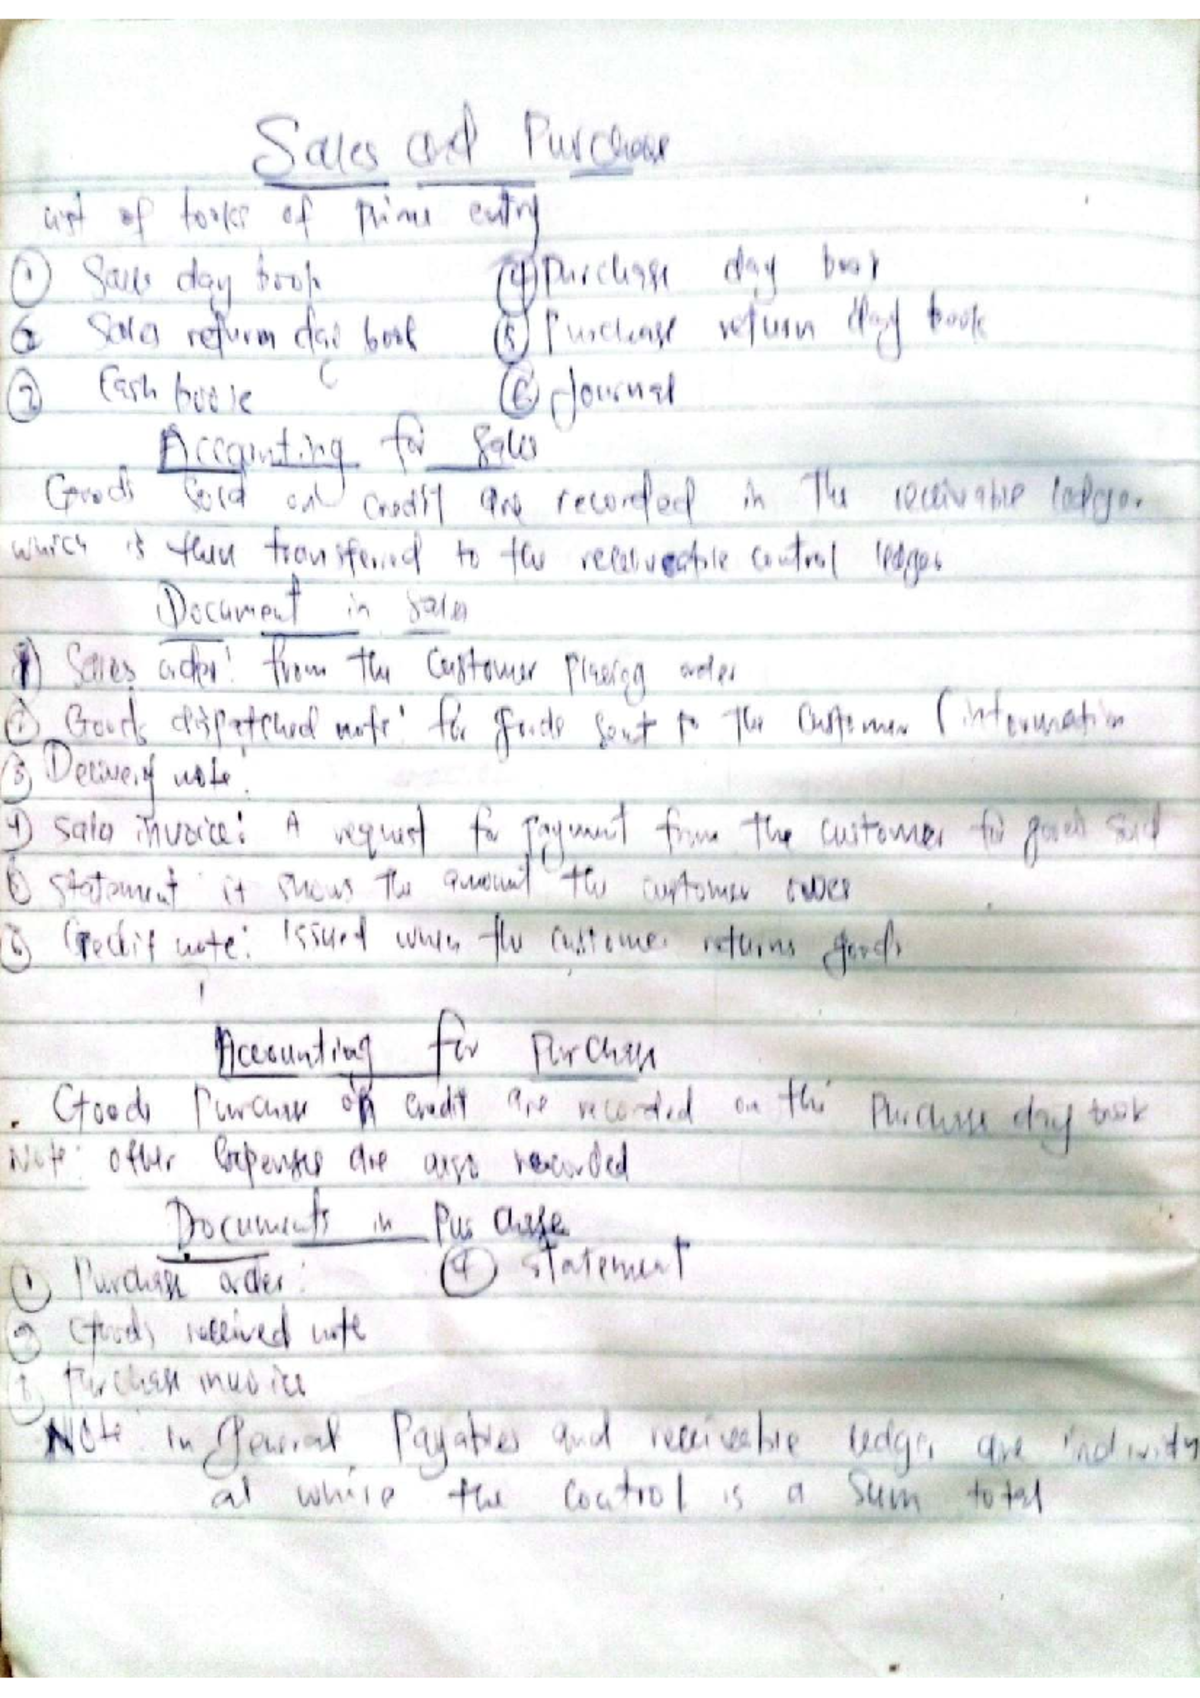 Sales and Purchase
List of books of Prime entry
① Sales day book ④ Purchase day book
② Sales return day book ⑤ Purchase return day book
③ Cash book ⑥ Journal
Accounting for Sales
Goods Sold on credit are recorded in the receivable ledger
which is then transferred to the receiveable control ledger
Document in Sales
1) Sales order: from the Customer placing order
② Goods dispatched note: for goods sent to the Customer (information
③ Delivery note:
4) Sales invoice: A request for payment from the customer for goods sold
⑤ Statement it shows the amount the customer owes
⑥ Credit note: Issued when the customer returns goods
Accounting for Purchase
. Goods Purchase on credit are recorded on the Purchase day book
Note: other Expenses are also recorded
Documents in Purchase
① Purchase order: ④ Statement
② Goods received note
③ Purchase invoice
Note: in General Payables and receiveable ledger are individu
al while the control is a Sum total